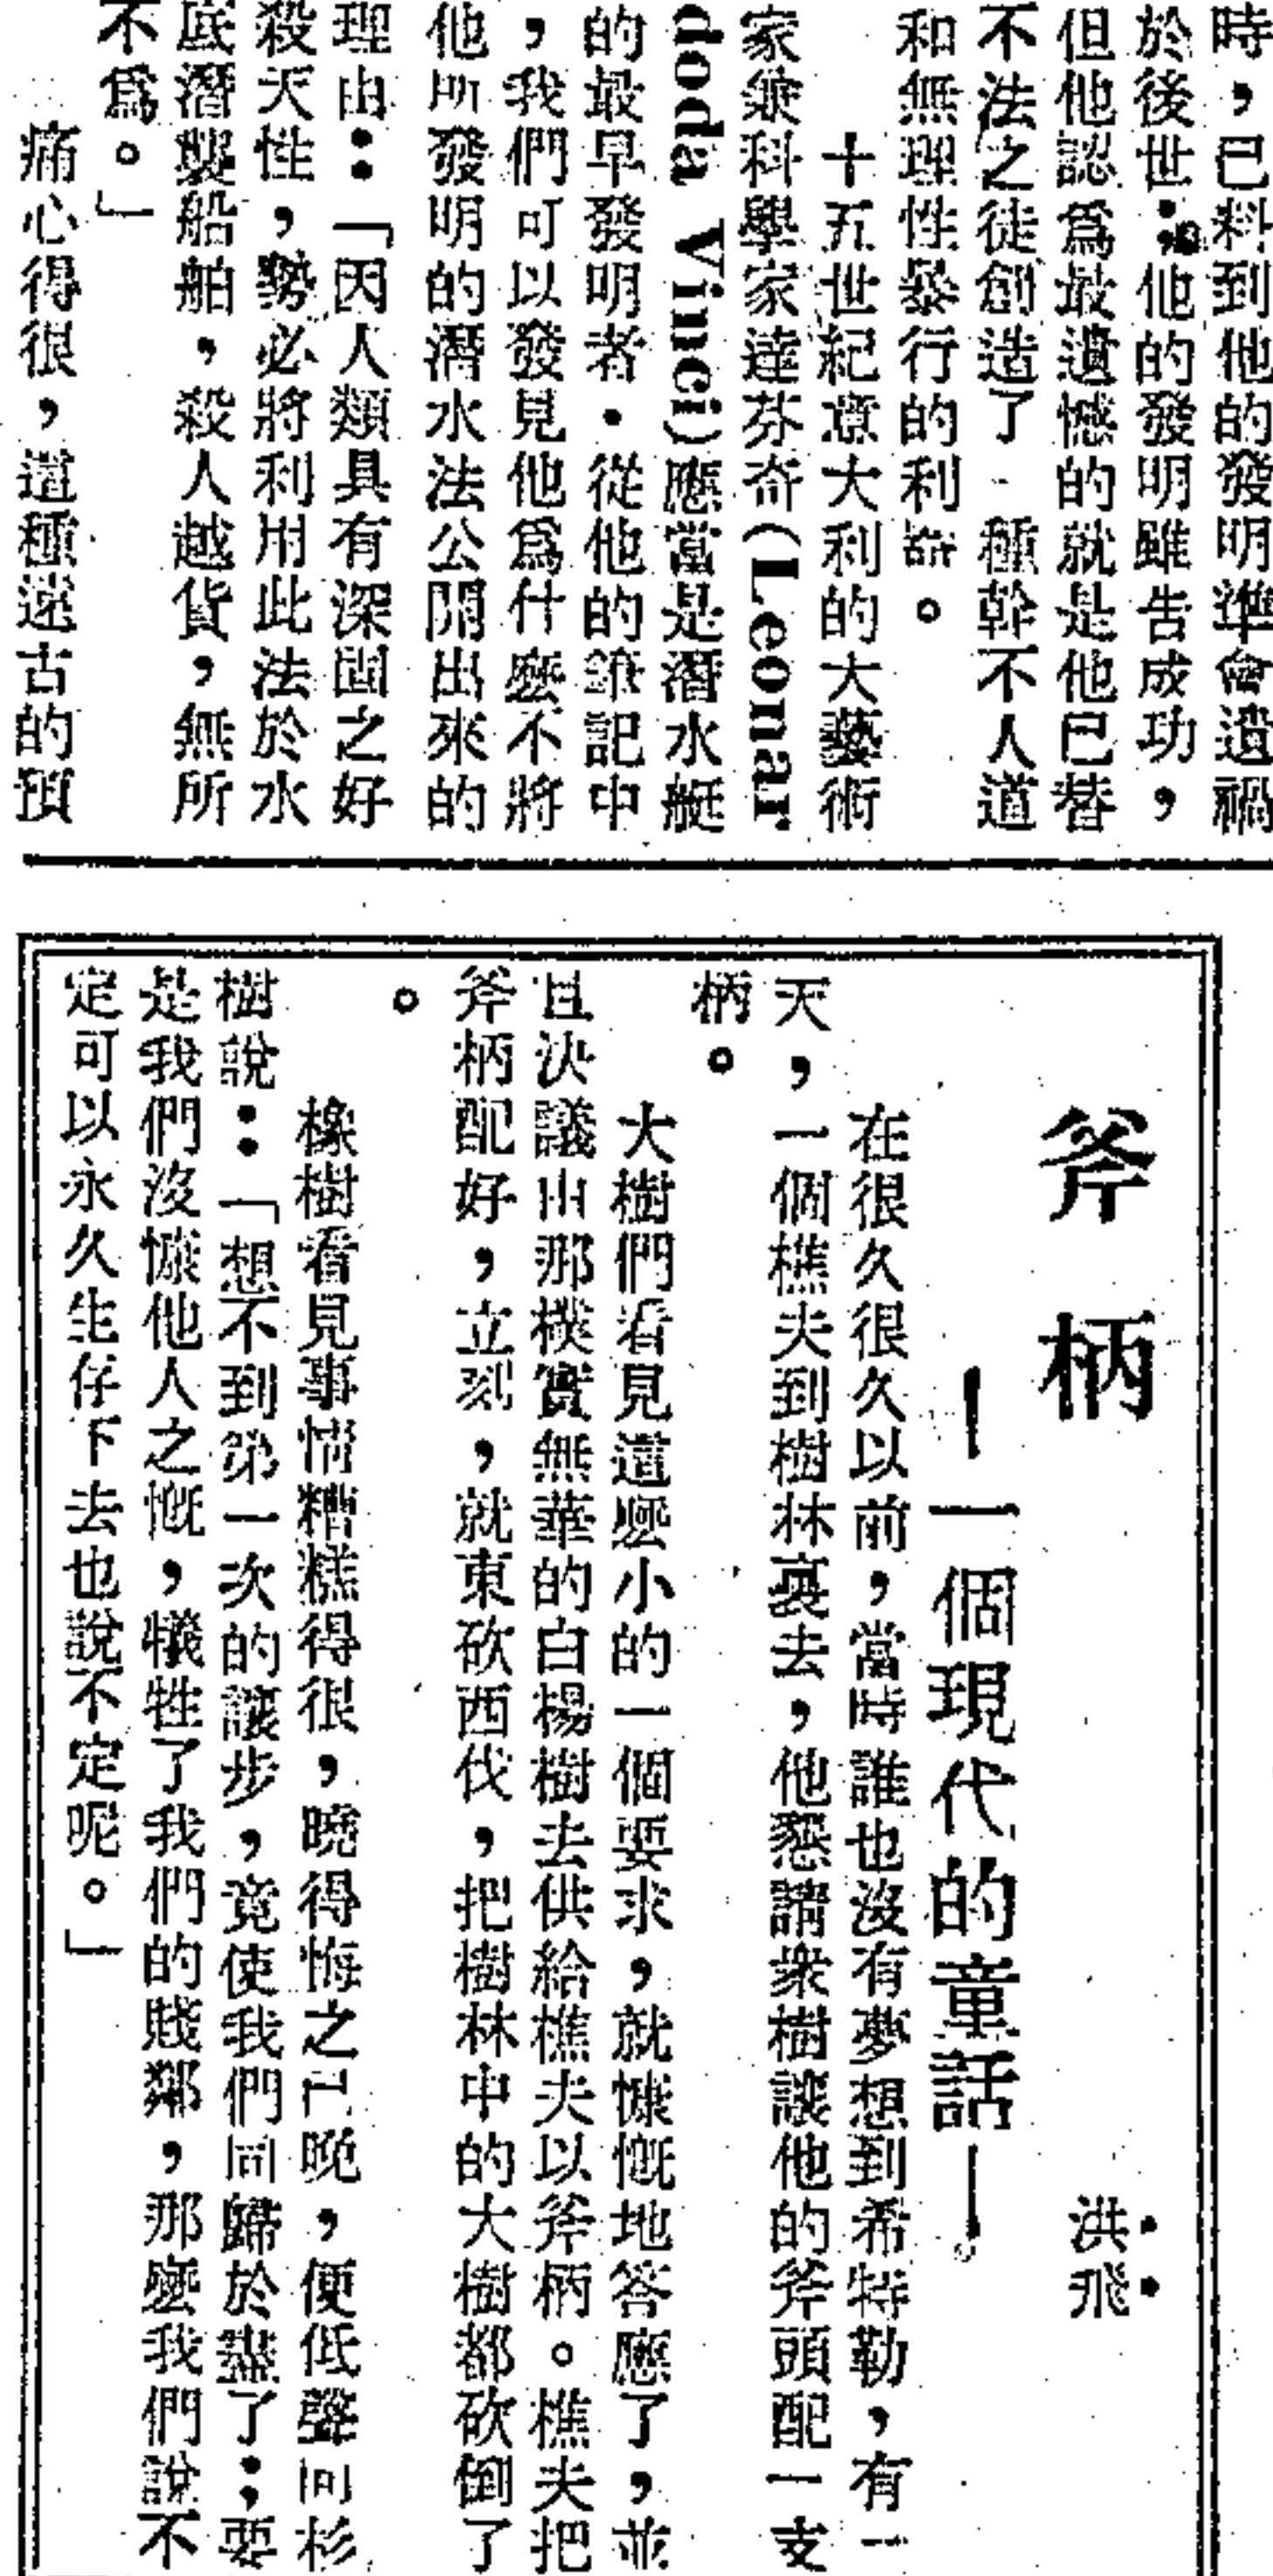 時，已料到他的發明準會遺禍
於後世；他的發明雖告成功，
但他認爲最遺憾的就是他已替
不法之徒創造了一種幹不人道
和無理性暴行的利器。
十五世紀意大利的大藝術
家兼科學家達芬奇(Leonar
doda Vinci)應當是潛水艇
的最早發明者．從他的筆記中
，我們可以發見他爲什麼不將
他所發明的潛水法公開出來的
理由：「因人類具有深固之好
殺天性，勢必將利用此法於水
底潛襲船舶，殺人越貨，無所
不爲。」
痛心得很，這種遠古的預
斧柄
—一個現代的童話—
洪飛
在很久很久以前，當時誰也沒有夢想到希特勒，有一
天，一個樵夫到樹林裏去，他懇請衆樹讓他的斧頭配一支
柄。
大樹們看見這麼小的一個要求，就慷慨地答應了，並
且決議由那樸實無華的白楊樹去供給樵夫以斧柄。樵夫把
斧柄配好，立刻，就東砍西伐，把樹林中的大樹都砍倒了
。
橡樹看見事情糟糕得很，曉得悔之已晚，便低聲向杉
樹說：「想不到第一次的讓步，竟使我們同歸於盡了；要
是我們沒慷他人之慨，犧牲了我們的賤鄰，那麼我們說不
定可以永久生存下去也說不定呢。」